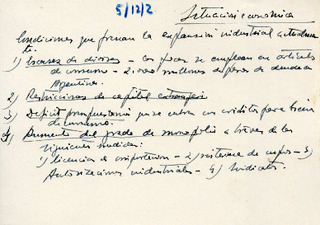 5/12/2
Situación económica
Condiciones que frenan la expansión industrial actualmen
te.
1) Escasez de divisas - Las pocas se emplean en artículos
de consumo - 2.000 millones de pesos de deuda en
Argentina.
2) Restricciones de capital extranjero
3) Déficit presupuestario que se cubre con créditos para
de consumo.
4) Aumento del grado de monopolio a través de las
siguientes medidas:
1) licencias de importación - 2) sistema de cupos - 3)
Autorizaciones industriales - 4) Sindicatos.